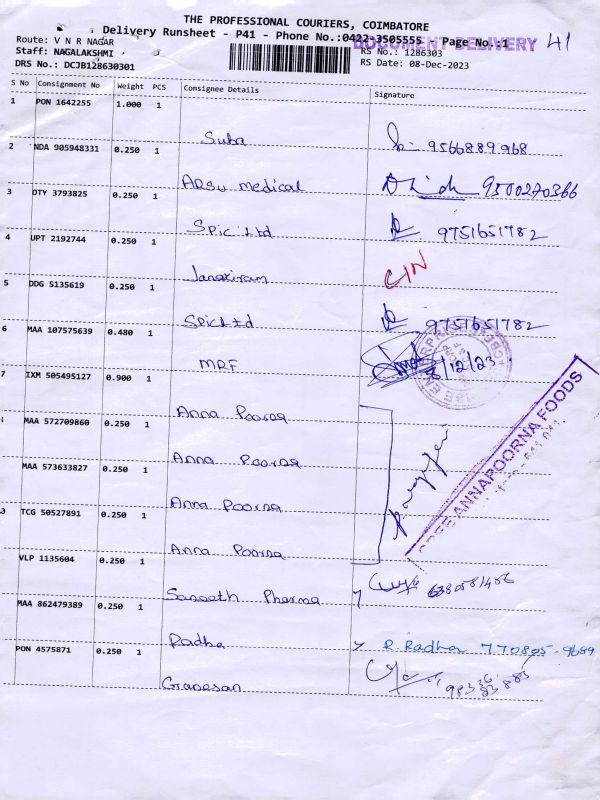 THE PROFESSIONAL COURIERS, COIMBATORE
Delivery Runsheet - P41 - Phone No.:0422-3505555 - Page No.:1
DOCUMENT DELIVERY 41
Route: V N R NAGAR
RS No.: 1286303
Staff: NAGALAKSHMI
RS Date: 08-Dec-2023
DRS No.: DCJB128630301
S No Consignment No Weight PCS Consignee Details Signature
1 PON 1642255 1.000 1
Suba 9566889968
2 NDA 905948331 0.250 1
ARSU medical 9500270366
3 DTY 3793825 0.250 1
SPic Ltd 9751651782
4 UPT 2192744 0.250 1
Janakiram C/N
5 DDG 5135619 0.250 1
SPic Ltd 9751651782
6 MAA 107575639 0.480 1
MRF 8/12/23
7 IXM 505495127 0.900 1
Anna Poorna
MAA 572709860 0.250 1
Anna Poorna
MAA 573633827 0.250 1
Anna Poorna
TCG 50527891 0.250 1
Anna Poorna
SREE ANNAPOORNA FOODS
VLP 1135604 0.250 1
Sangeeth Pharma
MAA 862479389 0.250 1
Radha R Radha
PON 4575871 0.250 1
Ganesan